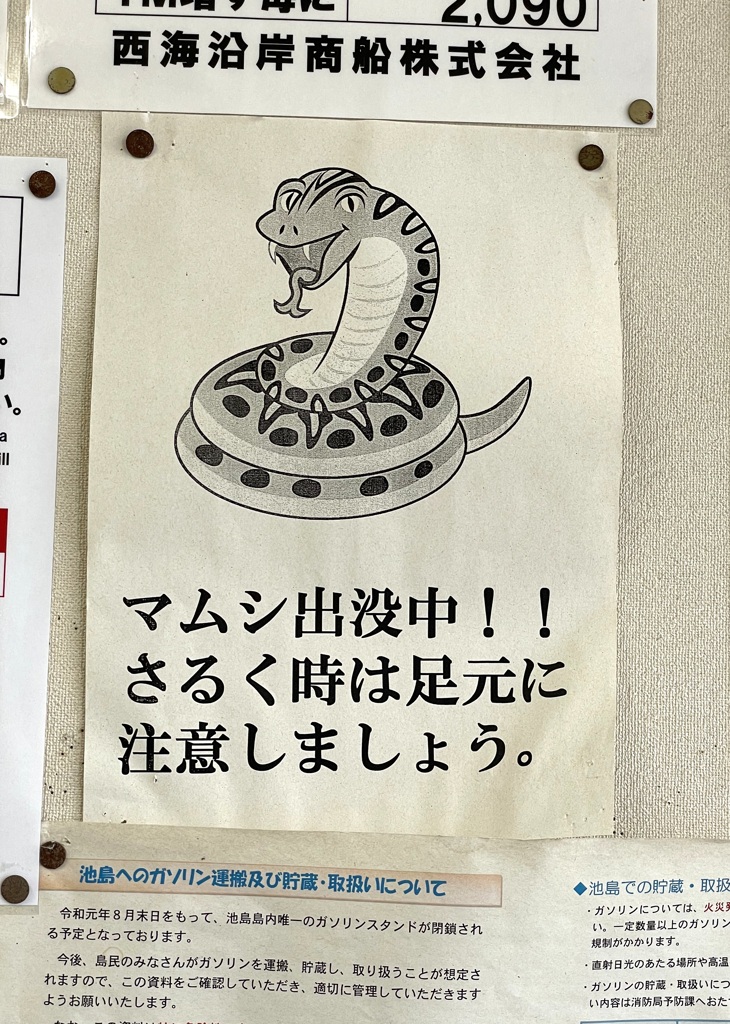 2,090
西海沿岸商船株式会社
い。
a
ill
マムシ出没中！！
さるく時は足元に
注意しましょう。
池島へのガソリン運搬及び貯蔵・取扱いについて
令和元年８月末日をもって、池島島内唯一のガソリンスタンドが閉鎖され
る予定となっております。
今後、島民のみなさんがガソリンを運搬、貯蔵し、取り扱うことが想定さ
れますので、この資料をご確認していただき、適切に管理していただきます
ようお願いいたします。
◆池島での貯蔵・取扱
・ガソリンについては、火災
い。一定数量以上のガソリン
規制がかかります。
・直射日光のあたる場所や高温
・ガソリンの貯蔵・取扱いにつ
い内容は消防局予防課へおた